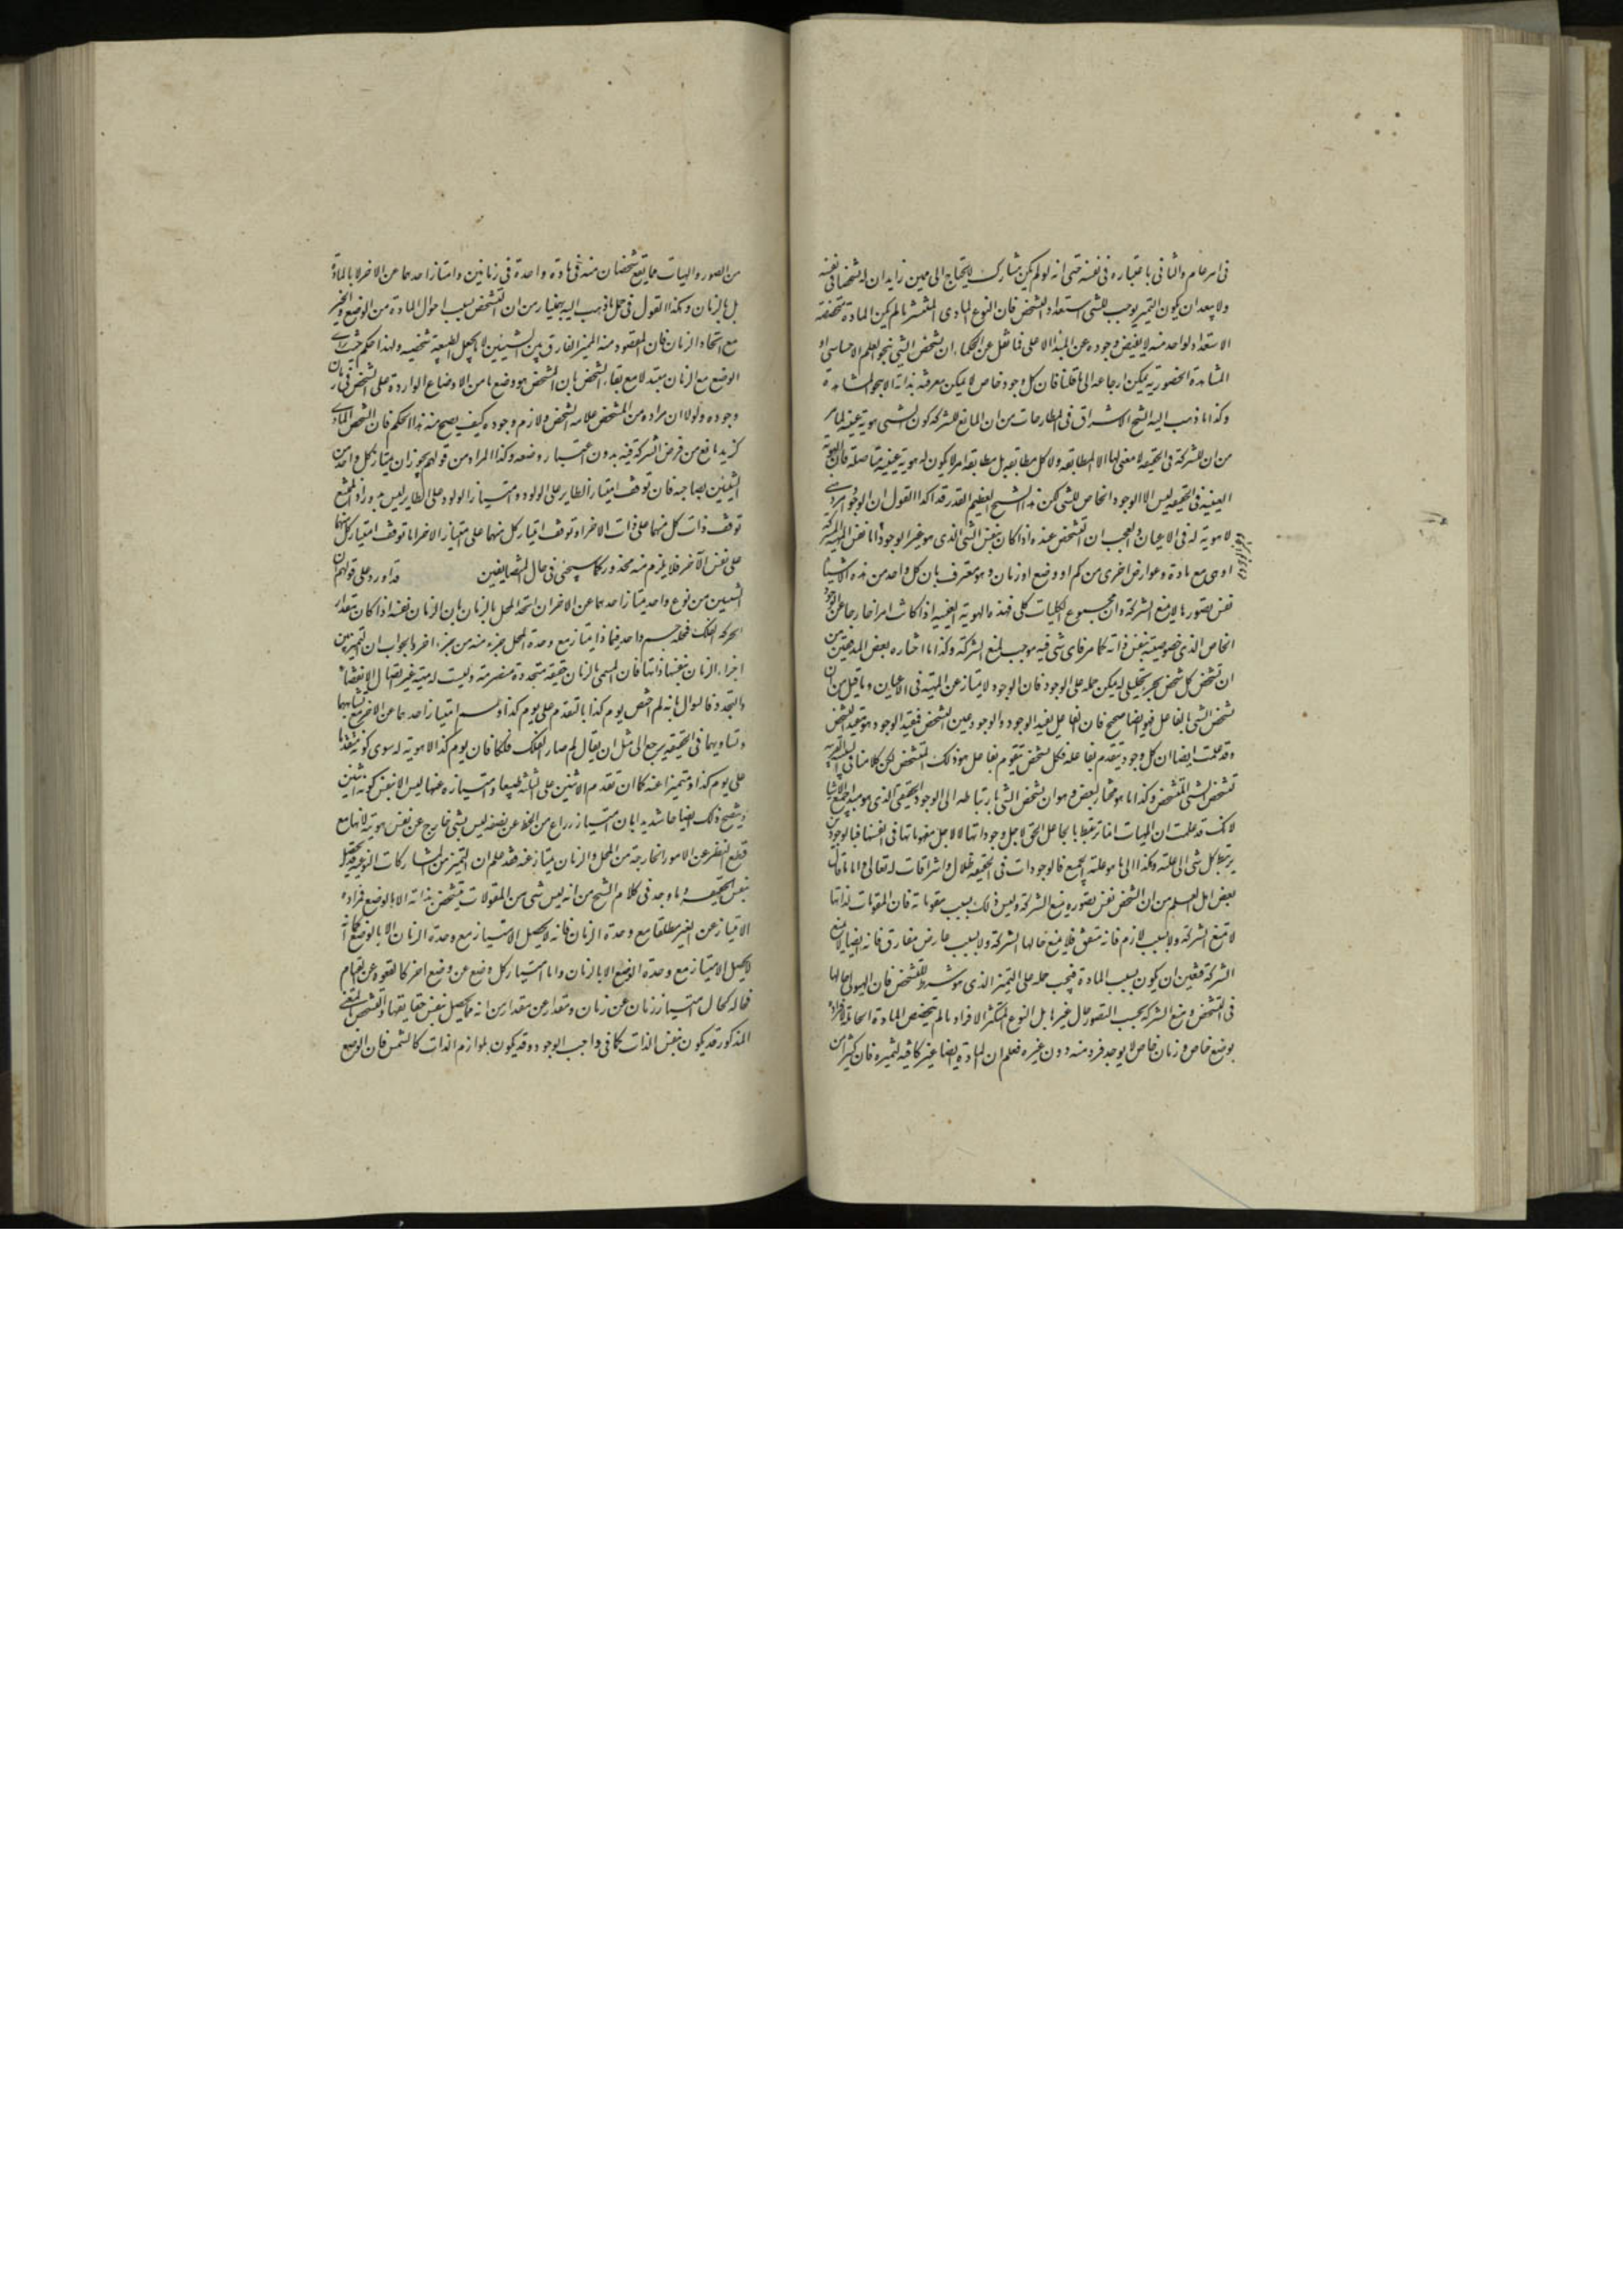 فى امر عام والثانى باعتباره فى نفسه حتى انه لو لم يكن مشارك لا يحتاج الى مميز زايد مع ان له تشخصا فى نفسه
ولا يبعد ان يكون التميز يوجب للشى استعداد التشخص فان النوع المادى المنتشر ما لم يكن المادة متخصصة
الاستعداد لواحد منه لا يفيض وجوده عن المبدا الاعلى فما نقل عن الحكماء ان تشخص الشى بنحو العلم الاحساسى او
المشاهدة الحضورية يمكن ارجاعه الى ما قلنا فان كل وجود خاص لا يمكن معرفته بذاته الا بنحو المشاهدة
وكذا ما ذهب اليه الشيخ الاشراقى فى المطارحات من ان المانع للشركة كون الشى هوية عينية لما مر
من ان الشركة فى الحقيقة لا معنى لها الا المطابقة ولا كل مطابقة بل مطابقة امر لا يكون له هوية عينية متاصلة فان الهوية
العينية فى الحقيقة ليس الا الوجود الخاص للشى لكن هذا الشيخ العظيم القدر قد اكد القول ان الوجود امر
لا هوية له فى الاعيان والعجب ان التشخص عنده اذا كان بنفس الشى الذى هو غير الوجود اما نفس المهية المشتركة
او هى مع مادة وعوارض اخرى من كم او وضع او زمان وهو معترف بان كل واحد من هذه الاشيا
نفس تصورها لا يمنع الشركة وان مجموع الكليات كلى فهذه الهوية العينية اذا كانت امرا خارجا عن الوجود
الخاص الذى خصوصيته بنفس ذاته كما مر فاى شى فيه موجب لمنع الشركة وكذا ما اختاره بعض المدققين من
ان تشخص كل شخص بجزء تحليلى له يمكن حمله على الوجود فان الوجود لا يمتاز عن المهية فى الاعيان وما قيل من ان
تشخص الشى بالفاعل فهو ايضا صحيح فان الفاعل يفيد الوجود والوجود عين التشخص فمفيد الوجود هو مفيد التشخص
وقد علمت ايضا ان كل وجود يتقوم بفاعله فكل تشخص يتقوم بفاعل هو ذلك التشخص لكن كلامنا فى السبب القريب
تشخص الشى المتشخص وكذا ما هو مختار بعض وهو ان تشخص الشى بارتباطه الى الوجود الحقيقى الذى هو مبدا جميع الاشيا
لانك قد علمت ان المهيات انما ترتبط بالجاعل الحق لاجل وجوداتها لا لاجل مفهوماتها فى انفسها فبالوجود
يرتبط كل شى الى علته وهكذا الى ما هو علة الجميع فالوجودات فى الحقيقة ظلال واشراقات له تعالى واما ما قال
بعض اهل العلم من ان الشخص نفس تصوره يمنع الشركة وليس ذلك بسبب مقوماته فان المقومات لذاتها
لا تمنع الشركة ولا بسبب لازم فانه متفق فلا يمنع حالها الشركة ولا بسبب عارض مفارق فانه ايضا لا يمنع
الشركة فتعين ان يكون بسبب المادة فيجب حمله على التميز الذى هو شرط للتشخص فان الهيولى حالها
فى التشخص ومنع الشركة بحسب التصور حال غيرها بل النوع المتكثر الافراد ما لم يتخصص المادة الحاملة لافراده
بوضع خاص وزمان خاص لا يوجد فرد منه دون غيره فعلم ان المادة ايضا غير كافية للتميز فان كثيرا من
من الصور والهيات مما يقع شخصان منه فى مادة واحدة فى زمانين وامتياز احدهما عن الاخر لا بالمادة
بل بالزمان وهكذا القول فى حمل ما ذهب اليه بهمنيار من ان التشخص بسبب احوال المادة من الوضع والحيز
مع اتحاد الزمان فان المقصود منه المميز الفارق بين الشيئين لا ما يجعل الطبيعة شخصية ولهذا حكم حيث راى
الوضع مع الزمان متبدلا مع بقاء الشخص بان المشخص هو وضع ما من الاوضاع الواردة على الشخص فى زمان
وجوده ولولا ان مراده من المشخص علامة التشخص ولازم وجوده كيف يصح منه هذا الحكم فان الشخص المادى
كزيد مانع من فرض الشركة فيه بدون اعتبار وضعه وكذا المراد من قولهم يجوز ان يمتاز كل واحد من
الشيئين بصاحبه فان توقف امتياز الطاير على الولود وامتياز الولود على الطاير ليس بدور اذ الممتنع
توقف ذات كل منهما على ذات الاخر او توقف امتياز كل منهما على امتياز الاخر اما توقف امتياز كل منهما
على نفس الآخر فلا يلزم منه محذور كما سيجئ فى حال المتضايفين قد اورد على قولهم ان
الشيئين من نوع واحد يمتاز احدهما عن الاخر ان اتحد المحل بالزمان بان الزمان نفسه اذا كان مقدار
لحركة الفلك فمحله جسم واحد فبماذا يمتاز مع وحدة المحل جزء منه من جزء اخر والجواب ان التميز بين
اجزاء الزمان بنفسها ذاتها فان المسمى بالزمان حقيقة متجددة متصرمة وليست له مهية غير اتصال الانقضاء
والتجدد فالسوال بانه لم اختص يوم كذا بالتقدم على يوم كذا وبم امتياز احدهما عن الاخر مع تشابههما
وتساويهما فى الحقيقة يرجع الى مثل ان يقال لم صار الفلك فلكا فان يوم كذا لا هوية له سوى كونه متقدما
على يوم كذا ومتميزا عنه كما ان تقدم الاثنين على الثلثة طبعا وامتيازه عنها ليس الا بنفس كونه اثنين
ويتضح ذلك ايضاحا شديدا بان امتياز ذراع من الخط عن نصفه ليس بشى خارج عن نفس هويته لانها مع
قطع النظر عن الامور الخارجة من المحل والزمان يمتاز عنه فقد علم ان التميز من المشاركات النوعية قد يحصل
بنفس الحقيقة وما وجد فى كلام الشيخ من انه ليس شى من المقولات يتشخص بذاته الا الوضع فمراده
الامتياز عن الغير مطلقا مع وحدة الزمان فانه لا يحصل الامتياز مع وحدة الزمان الا بالوضع كما انه
لا يحصل الامتياز مع وحدة الوضع الا بالزمان واما امتياز كل وضع عن وضع اخر كالقعود عن القيام
فحاله كحال امتياز زمان عن زمان ومقدار عن مقدار من انه مما يحصل بنفس حقايقها والتشخص بالمعنى
المذكور قد يكون بنفس الذات كما فى واجب الوجود وقد يكون بلوازم الذات كالشمس فان الوضع